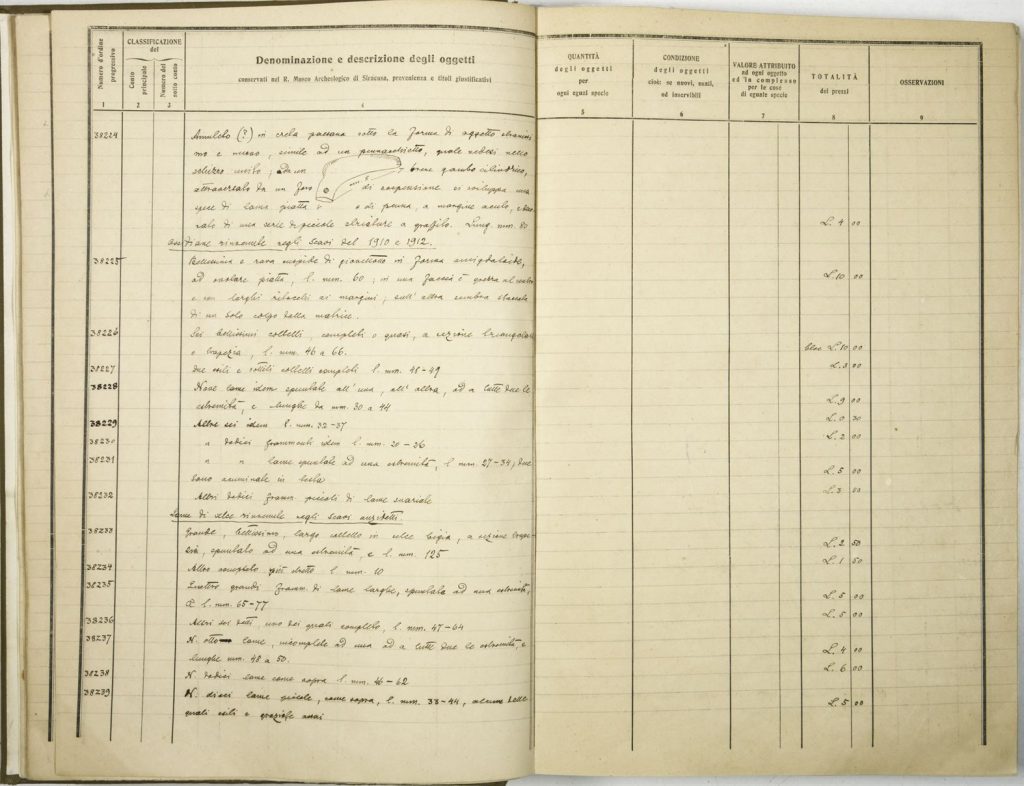 Numero d'ordine progressivo
CLASSIFICAZIONE
del
Conto principale
Numero del sotto conto
Denominazione e descrizione degli oggetti
conservati nel R. Museo Archeologico di Siracusa, provenienza e titoli giustificativi
QUANTITÀ
degli oggetti
per
ogni egual specie
CONDIZIONE
degli oggetti
cioè: se nuovi, usati,
od inservibili
VALORE ATTRIBUITO
ad ogni oggetto
ed in complesso
per le cose
di eguale specie
TOTALITÀ
dei prezzi
OSSERVAZIONI
1 2 3 4 5 6 7 8 9
38224 Amuleto (?) in creta sotto la forma di oggetto
mo e nuovo, simile ad un quale vedesi nello
schizzo unito; da un breve gambo cilindrico,
attraversato da un foro di sospensione, si sviluppa una
specie di lama piatta o di penna, a margine
di una serie di piccole striature a graffito. Lung. mm. 80 L. 4 00
rinvenute negli Scavi del 1910 e 1912.
38225 Bellissima e rara cuspide di giavellotto in forma amigdaloide,
ad piatta, l. mm. 60; in una faccia è
e con larghi ritocchi ai margini; sull'altra sembra staccata
di un solo colpo dalla matrice. L. 10 00
38226 Sei bellissimi coltelli, completi o quasi, a sezione triangolare
o trapezia, l. mm. 46 a 66. L. 10 00
38227 Due esili e sottili coltelli completi l. mm. 45-49 L. 3 00
38228 Nove lame idem spuntate all'una, all'altra, od a tutte due le
estremità, e lunghe da mm. 30 a 44 L. 9 00
38229 Altre sei idem l. mm. 32-37 L. 0 30
38230 " dodici frammenti idem l. mm. 20-36 L. 2 00
38231 " " lame spuntate ad una estremità, l. mm. 27-34; due
sono in L. 5 00
38232 Altri dodici framm. piccoli di lame L. 3 00
Lame di selce rinvenute negli Scavi
38233 Grande, bellissimo, largo coltello in selce bigia, a sezione
spuntato ad una estremità e l. mm. 125 L. 2 50
38234 Altro completo più stretto l. mm. 10 L. 1 50
38235 Quattro grandi framm. di lame larghe, spuntate ad una estremità,
l. mm. 65-77 L. 5 00
38236 Altri sei detti, uno dei quali completo, l. mm. 47-64 L. 5 00
38237 N. otto lame, incomplete ad una od a tutte due le estremità, e
lunghe mm. 45 a 50. L. 4 00
38238 N. dodici lame come sopra l. mm. 46-62 L. 6 00
38239 N. dieci lame piccole, come sopra, l. mm. 33-44, alcune delle
quali esili e graziose assai L. 5 00